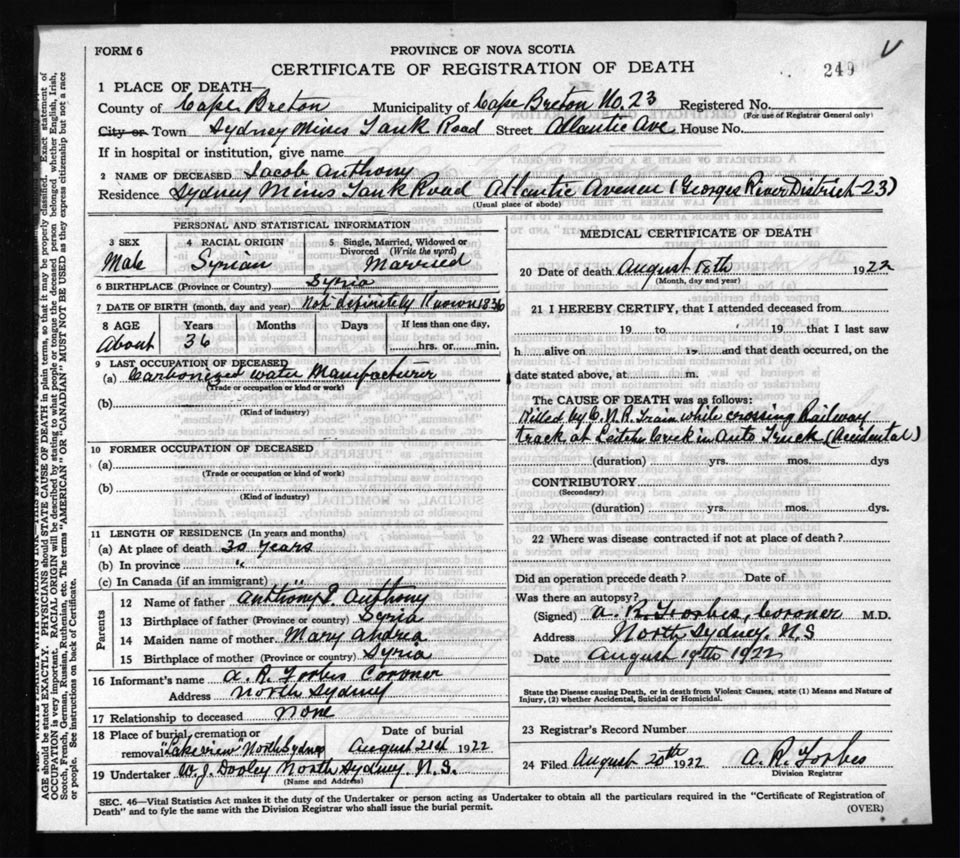 FORM 6
PROVINCE OF NOVA SCOTIA
CERTIFICATE OF REGISTRATION OF DEATH
249
1 PLACE OF DEATH—
County of Cape Breton Municipality of Cape Breton No. 23 Registered No.
(For use of Registrar General only)
City or Town Sydney Mines Tank Road Street Atlantic Ave. House No.
If in hospital or institution, give name
2 NAME OF DECEASED Jacob Anthony
Residence Sydney Mines Tank Road Atlantic Avenue (Georges River District-23)
(Usual place of abode)
PERSONAL AND STATISTICAL INFORMATION
3 SEX 4 RACIAL ORIGIN 5 Single, Married, Widowed or Divorced (Write the word)
Male Syrian Married
6 BIRTHPLACE (Province or Country) Syria
7 DATE OF BIRTH (month, day and year) Not definitely Known 1836
8 AGE Years Months Days If less than one day,
About 36 hrs. or min.
9 LAST OCCUPATION OF DECEASED
(a) Carbonized water Manufacturer
(Trade or occupation or kind of work)
(b)
(Kind of industry)
10 FORMER OCCUPATION OF DECEASED
(a)
(Trade or occupation or kind of work)
(b)
(Kind of industry)
11 LENGTH OF RESIDENCE (In years and months)
(a) At place of death 30 years
(b) In province "
(c) In Canada (if an immigrant) "
Parents
12 Name of father Anthony J. Anthony
13 Birthplace of father (Province or country) Syria
14 Maiden name of mother Mary Andrea
15 Birthplace of mother (Province or country) Syria
16 Informant's name A. R. Forbes Coroner
Address North Sydney
17 Relationship to deceased None
18 Place of burial, cremation or removal "Lakeview" North Sydney Date of burial August 21st 1922
19 Undertaker W. J. Dooley North Sydney. N. S.
(Name and Address)
MEDICAL CERTIFICATE OF DEATH
20 Date of death August 18th 1922
(Month, day and year)
21 I HEREBY CERTIFY, that I attended deceased from
19 to 19 that I last saw
h alive on 19 and that death occurred, on the
date stated above, at m.
The CAUSE OF DEATH was as follows:
Killed by C.N.R. Train while crossing Railway
track at Leitches Creek in Auto Truck (Accidental)
(duration) yrs. mos. dys
CONTRIBUTORY
(Secondary)
(duration) yrs. mos. dys.
22 Where was disease contracted if not at place of death?
Did an operation precede death? Date of
Was there an autopsy?
(Signed) A. R. Forbes, Coroner M.D.
Address North Sydney, N.S
Date August 19th 1922
State the Disease causing Death, or in death from Violent Causes, state (1) Means and Nature of
Injury, (2) whether Accidental, Suicidal or Homicidal.
23 Registrar's Record Number
24 Filed August 20th 1922 A. R. Forbes
Division Registrar
SEC. 46—Vital Statistics Act makes it the duty of the Undertaker or person acting as Undertaker to obtain all the particulars required in the "Certificate of Registration of
Death" and to fyle the same with the Division Registrar who shall issue the burial permit.
(OVER)
AGE should be stated EXACTLY. PHYSICIANS should STATE CAUSE OF DEATH in plain terms, so that it may be properly classified. Exact statement of
OCCUPATION is very important. RACIAL ORIGIN will be described by stating to what people or tongue the deceased person belonged whether English, Irish,
Scotch, French, German, Russian, Ruthenian, etc. The terms "AMERICAN" OR "CANADIAN" MUST NOT BE USED as they express citizenship but not a race
or people. See instructions on back of Certificate.